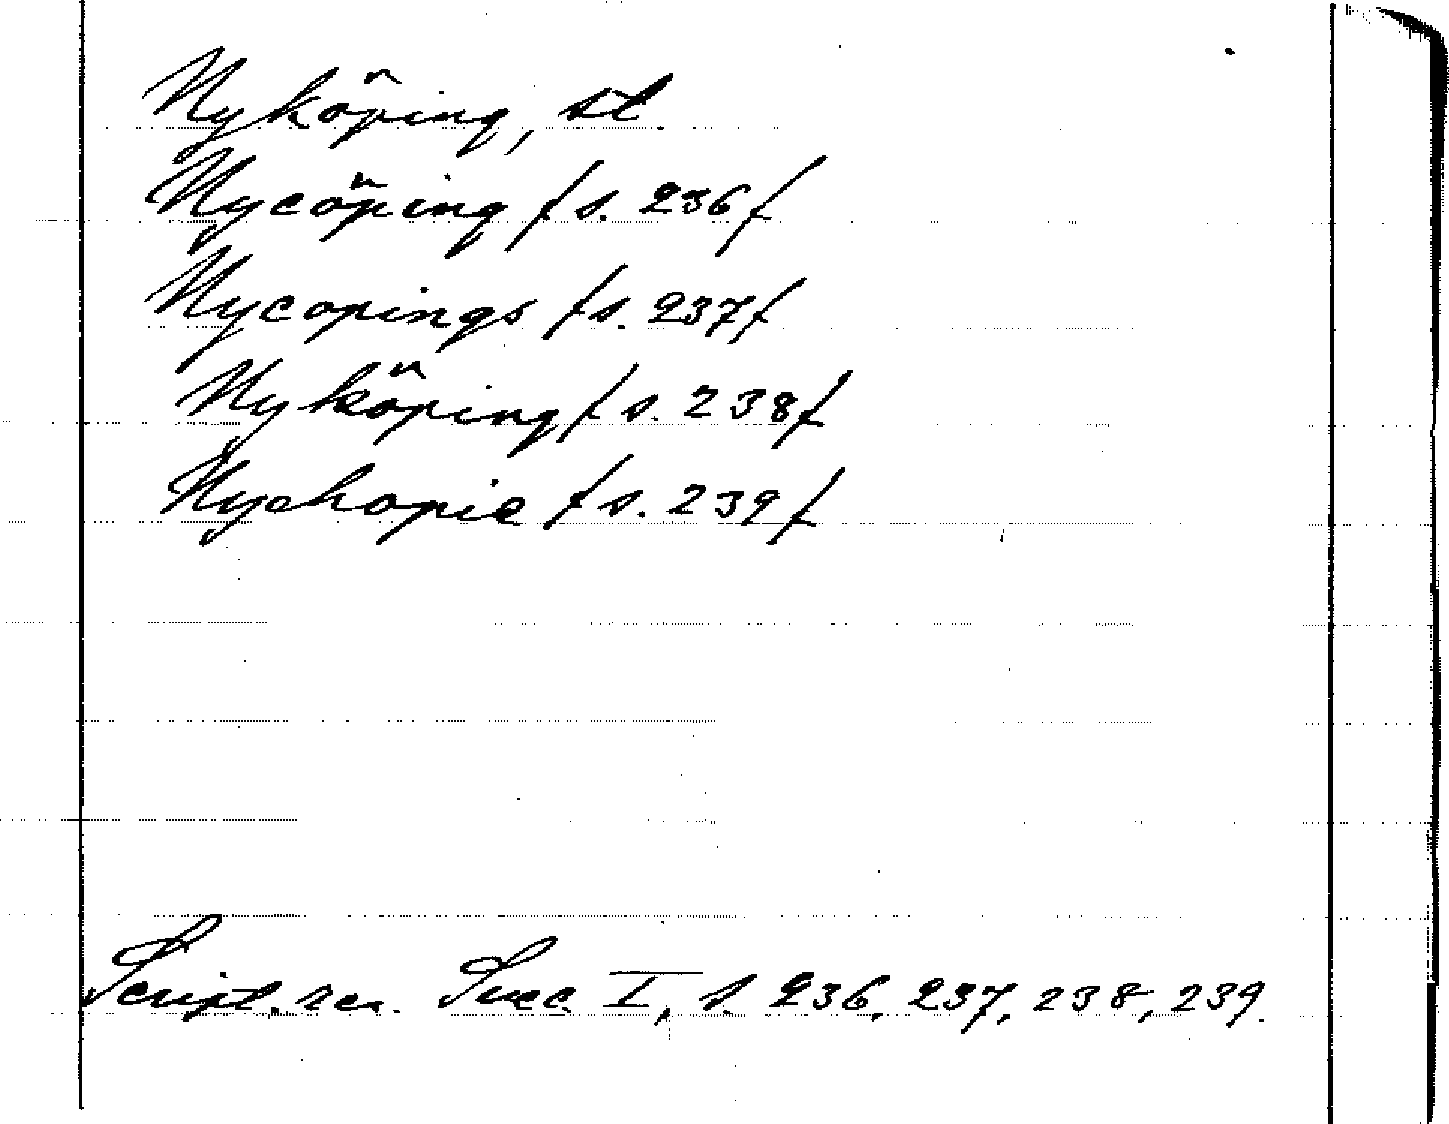 Nyköping, st
Nycöping (s. 236)
Nycopings (s. 237)
Nyköping (s. 238)
Nychopie (s. 239)
Script. rer. Suec. I, s. 236, 237, 238, 239.